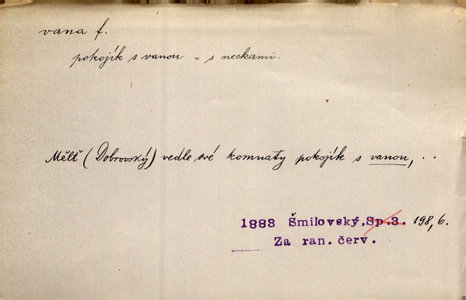 vana f.
pokojík s vanou = s neckami.
Měltě (Dobrovský) vedle své komnaty pokojík s vanou, ..
1883 Šmilovský.Sp.3. 198,6.
Za ran. červ.